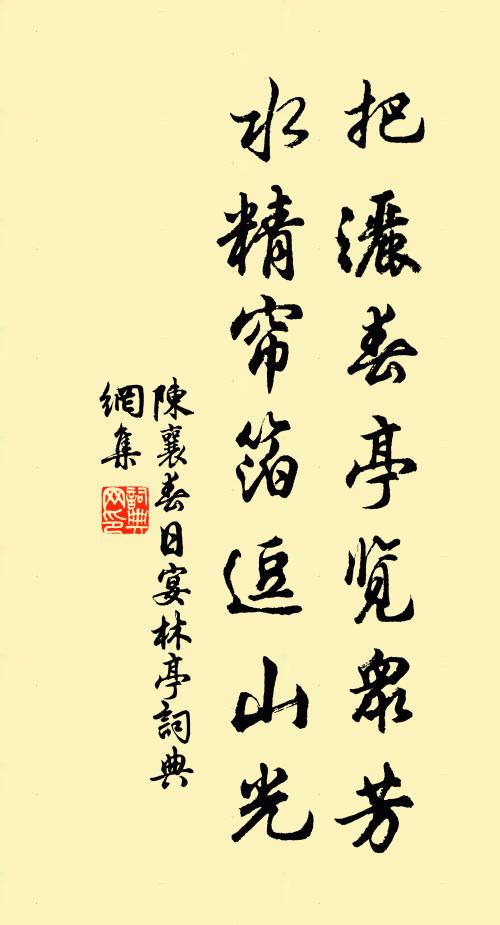 把灑春亭览眾芳
水精帘箔逗山光
陳襄春日宴林亭詞典
網集
詞典
网印